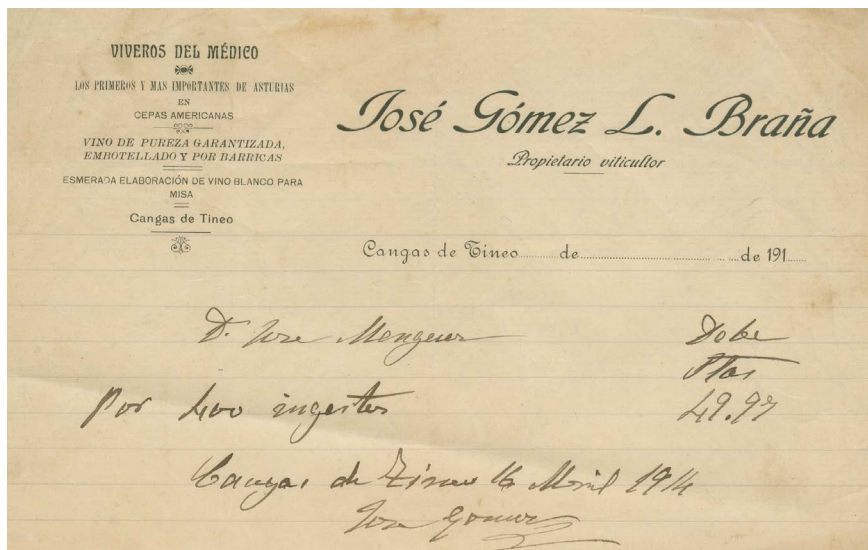 VIVEROS DEL MÉDICO
LOS PRIMEROS Y MAS IMPORTANTES DE ASTURIAS
EN
CEPAS AMERICANAS
VINO DE PUREZA GARANTIZADA,
EMBOTELLADO Y POR BARRICAS
ESMERADA ELABORACIÓN DE VINO BLANCO PARA
MISA
Cangas de Tineo
José Gómez L. Braña
Propietario viticultor
Cangas de Tineo de de 191
D. Jose Debe
Ptas
Por 400 ingertos 49.97
Cangas de Tineo 16 Abril 1914
Jose Gomez